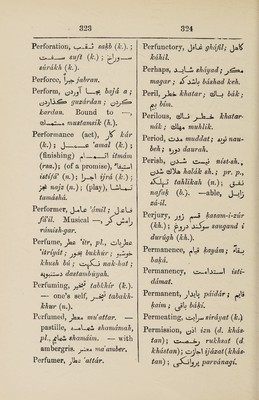 323
Perforation, ثقب saḳb (k.);
سفت suft (k.); سوراخ
súrákh (k.).
Perforce, جبراً jabran.
Perform, بجا لاؤ bajá a;
گذاردن guzárdan; کردن
kardan. Bound to —,
mustamsik (h.).
Performance (act), کار kár
(k.); عمل 'amal (k.);
(finishing) اتمام itmám
(raa.); (of a promise), ایفا
istífá (n.); اجرا ijrá (k.);
ناز naja (n.); (play), تماشا
tamáshá.
Performer, عامل 'ámil; فاعل
fá'il. Musical —, رامشگر
rámish-gar.
Perfume, عطر 'itr, pl., عطریات
'itriyát; بخور bukhúr; خوشبو
khush bú; نکهت nak-hat;
دستنبویه dastambúyah.
Perfuming, تبخیر tabkhír (k.).
— one's self, تبخر tabakh-
khur (n.).
Perfumed, معطر mu'attar. —
pastille, شمامه shamámah,
pl., شمائم shamáim. — with
ambergris. معنبر ma'amber.
Perfumer, عطار 'attár.
324
Perfunctory, غافل gháfil; کاهل
káhil.
Perhaps, شاید sháyad; مگر
magar; باشد که báshad keh.
Peril, خطر khatar; باك bák;
بیم bím.
Perilous, خطرناك khatar-
nák; مهلك muhlik.
Period, مدت muddat; نوبه naw-
beh; دوره daurah.
Perish, نیست شدن níst-sh.,
هلاك شدن halák sh.; pr. p.,
تهلکه tahlikah (n.); نفق
nafek (h.). —able, زایل
zá-il.
Perjury, قسم زور ḳazam-i-zúr
(kh.); سوگند دروغ saugand i
darúgh (kh.).
Permanence, قیام ḳayám; بقا
baḳá.
Permanency, استدامت isti-
dámat.
Permanent, پایدار páídár; قایم
ḳaim; باقی báḳí.
Permeating, سرایت siráyat (k.)
Permission, اذن izn (d. khás-
tan); رخصت rukhsat (d.
khástan); اجازت ijázat (khás-
tan); پروانگی parvánagí.